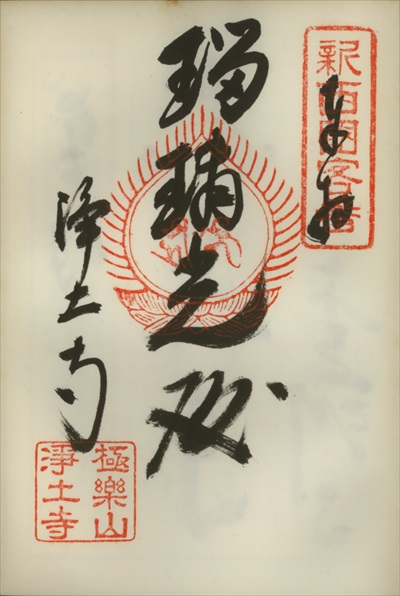 新西国客番
奉拝
瑠璃光殿
浄土寺
極樂山
淨土寺